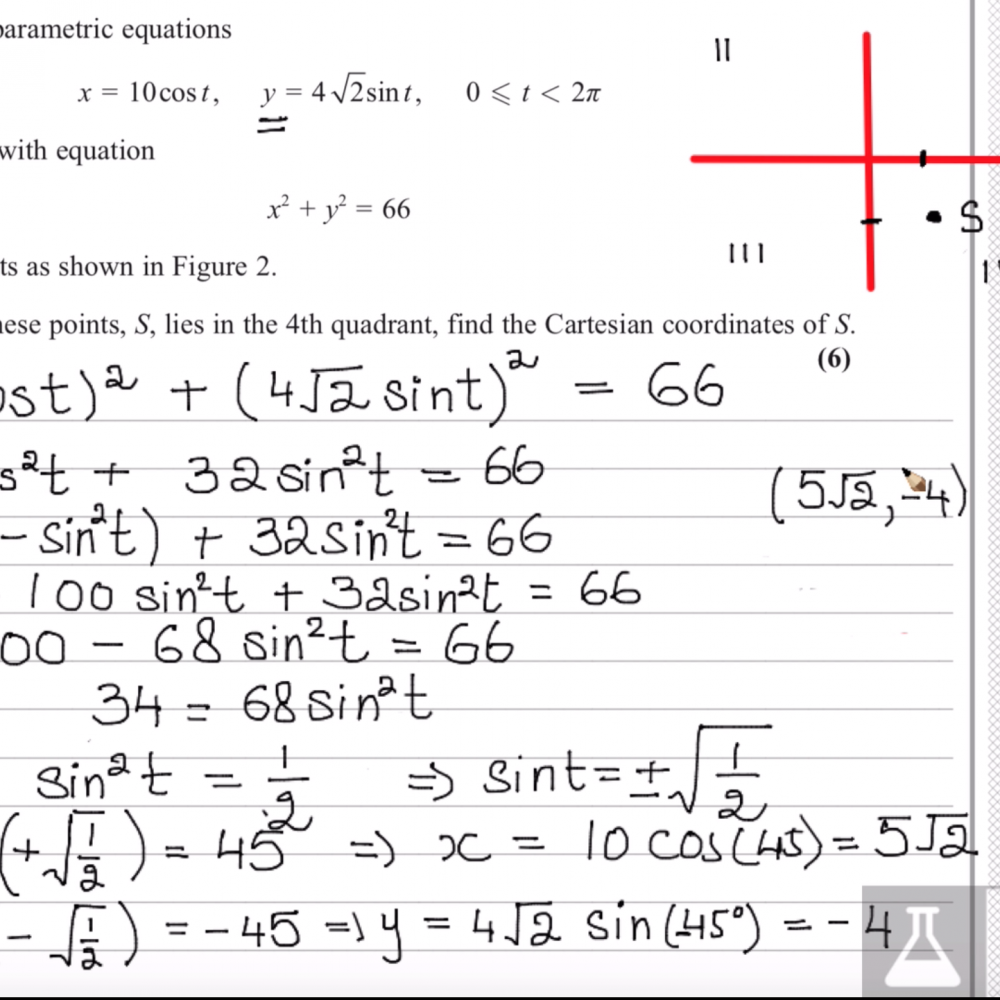 parametric equations
x = 10cost, y = 4√2sint, 0 ⩽ t < 2π
with equation
x² + y² = 66
ts as shown in Figure 2.
hese points, S, lies in the 4th quadrant, find the Cartesian coordinates of S.
(6)
II
III
S
ost)² + (4√2 sint)² = 66
s²t + 32sin²t = 66
(5√2, -4)
- sin²t) + 32sin²t = 66
100 sin²t + 32sin²t = 66
00 - 68 sin²t = 66
34 = 68sin²t
sin²t = 1/2 ⇒ sint = ±√1/2
(+√1/2) = 45 ⇒ x = 10 cos(45) = 5√2
-√1/2) = -45 ⇒ y = 4√2 sin(-45°) = -4